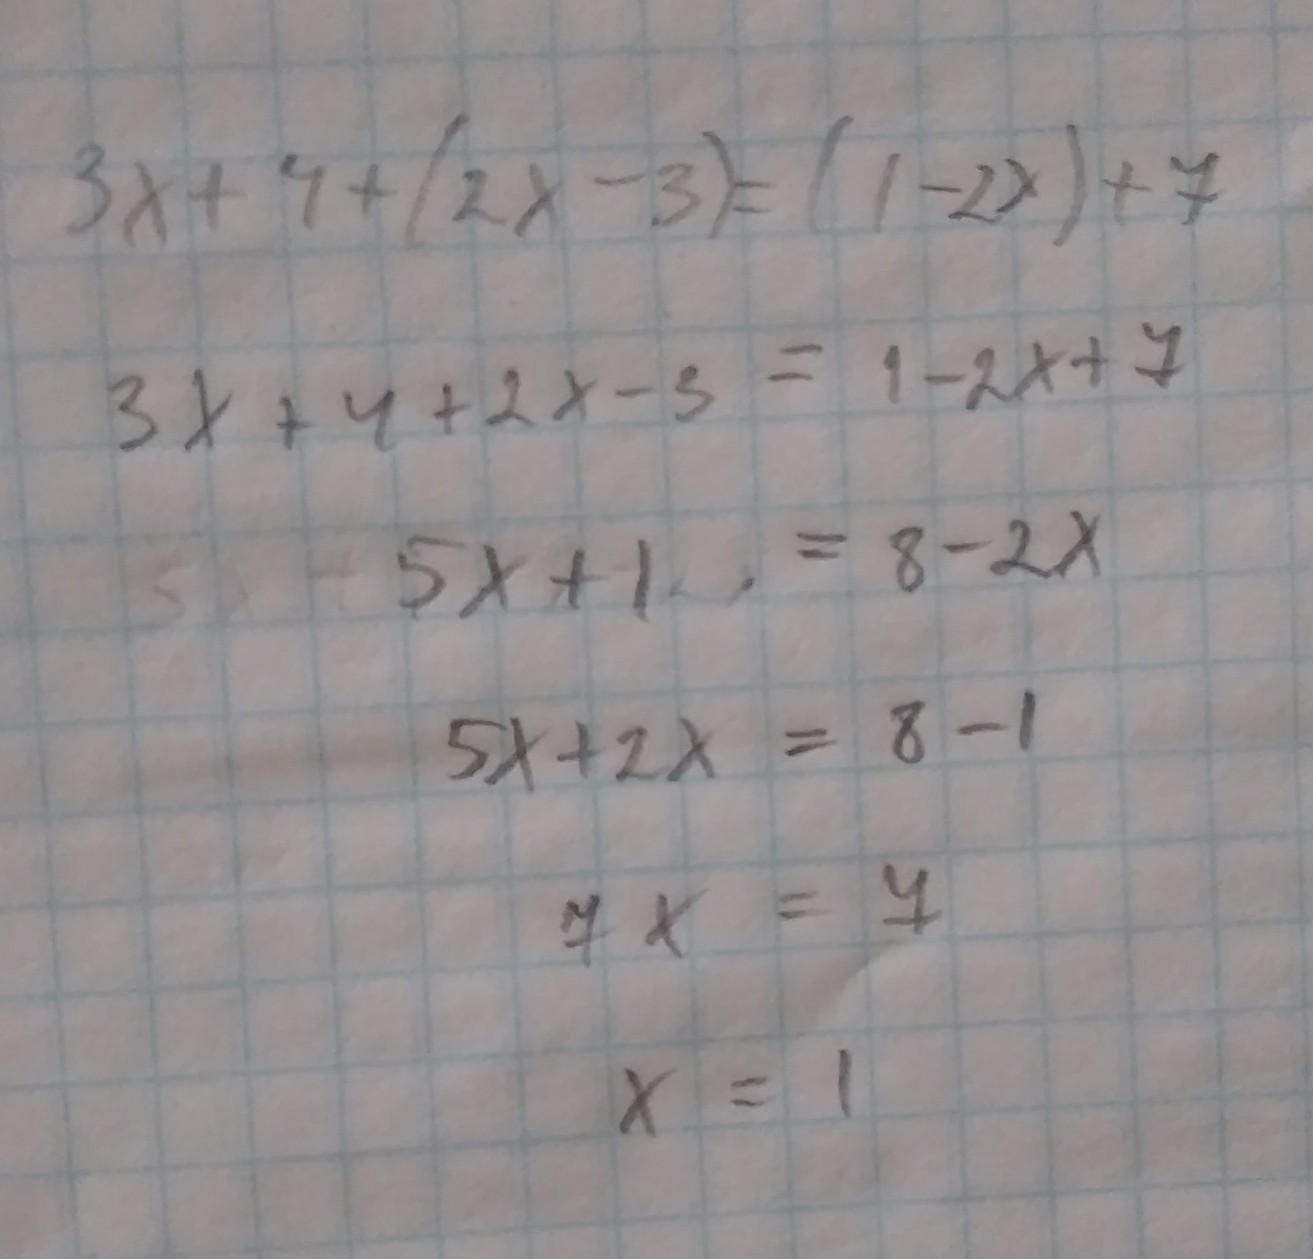 3x+4+(2x-3)=(1-2x)+7
3x+4+2x-3=1-2x+7
5x+1=8-2x
5x+2x=8-1
7x=7
x=1